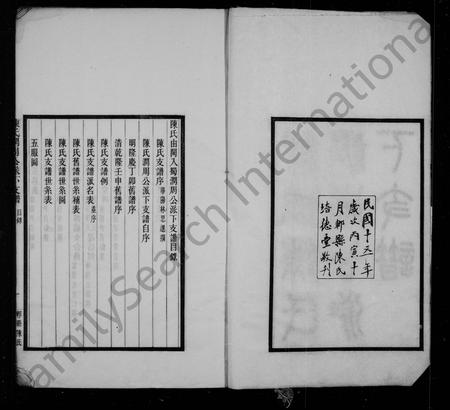 民國十五年
歲次丙寅十
月郫縣陳氏
培德堂敬刊
陳氏由閩入蜀潤周公派下支譜目錄
陳氏支譜序
陳氏潤周公派下支譜自序
明隆慶丁卯舊譜序
清乾隆壬申舊譜序
陳氏支譜例
陳氏支譜派名表
陳氏舊譜世系補表
陳氏支譜世系圖
陳氏支譜世系表
五服圖
目錄
一
郫縣陳氏
FamilySearch International